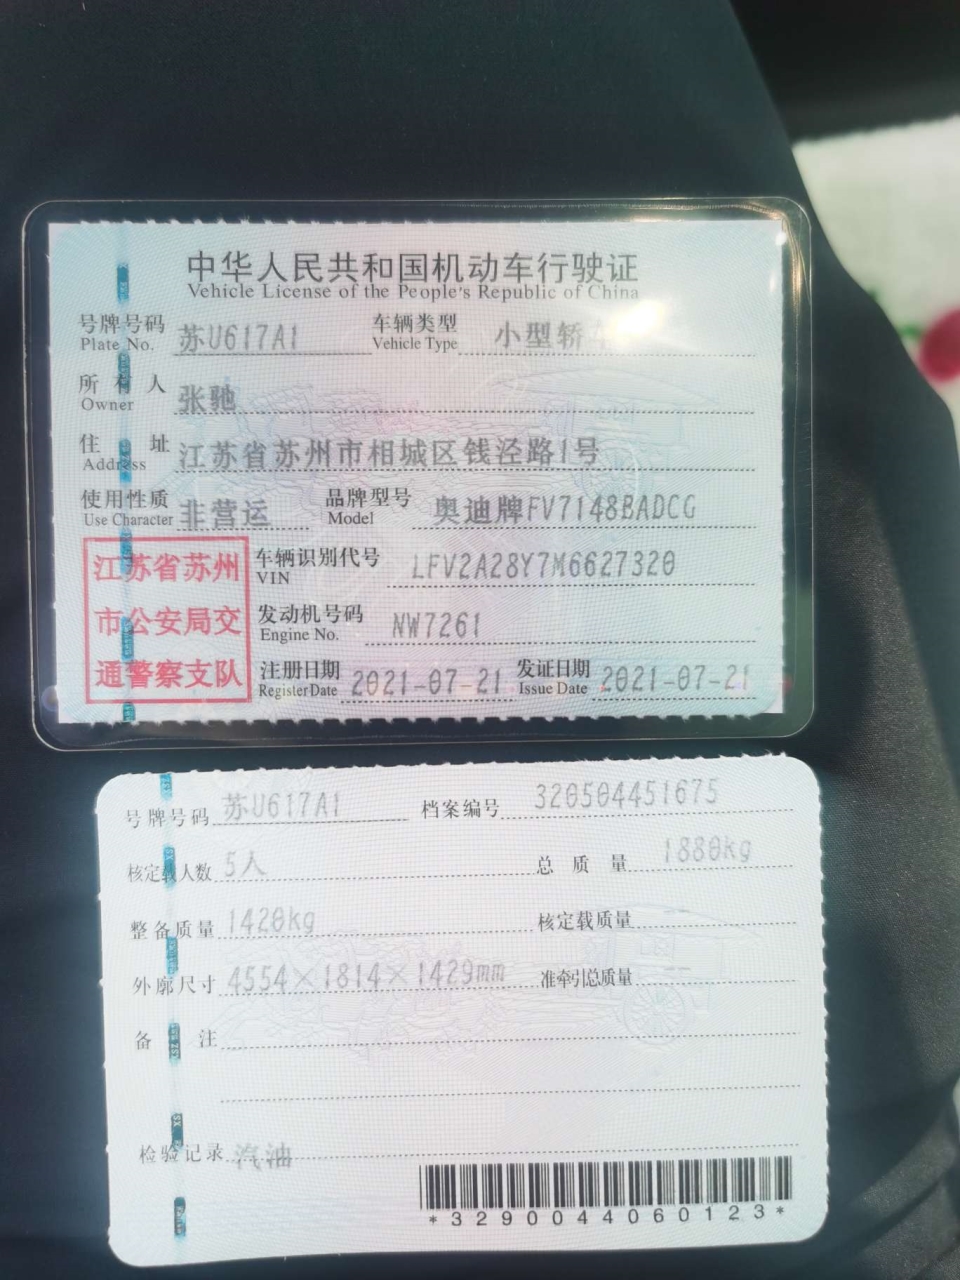 中华人民共和国机动车行驶证
Vehicle License of the People's Republic of China
号牌号码 苏U617A1 车辆类型 小型轿车
Plate No. Vehicle Type
所有人 张驰
Owner
住址 江苏省苏州市相城区钱泾路1号
Address
使用性质 非营运 品牌型号 奥迪牌FV7148BADCG
Use Character Model
江苏省苏州
市公安局交
通警察支队
车辆识别代号 LFV2A28Y7M6627320
VIN
发动机号码 NW7261
Engine No.
注册日期 2021-07-21 发证日期 2021-07-21
Register Date Issue Date
号牌号码 苏U617A1 档案编号 320504451675
核定载人数 5人 总质量 1880kg
整备质量 1420kg 核定载质量
外廓尺寸 4554×1814×1429mm 准牵引总质量
备注
检验记录 汽油
*3290044060123*